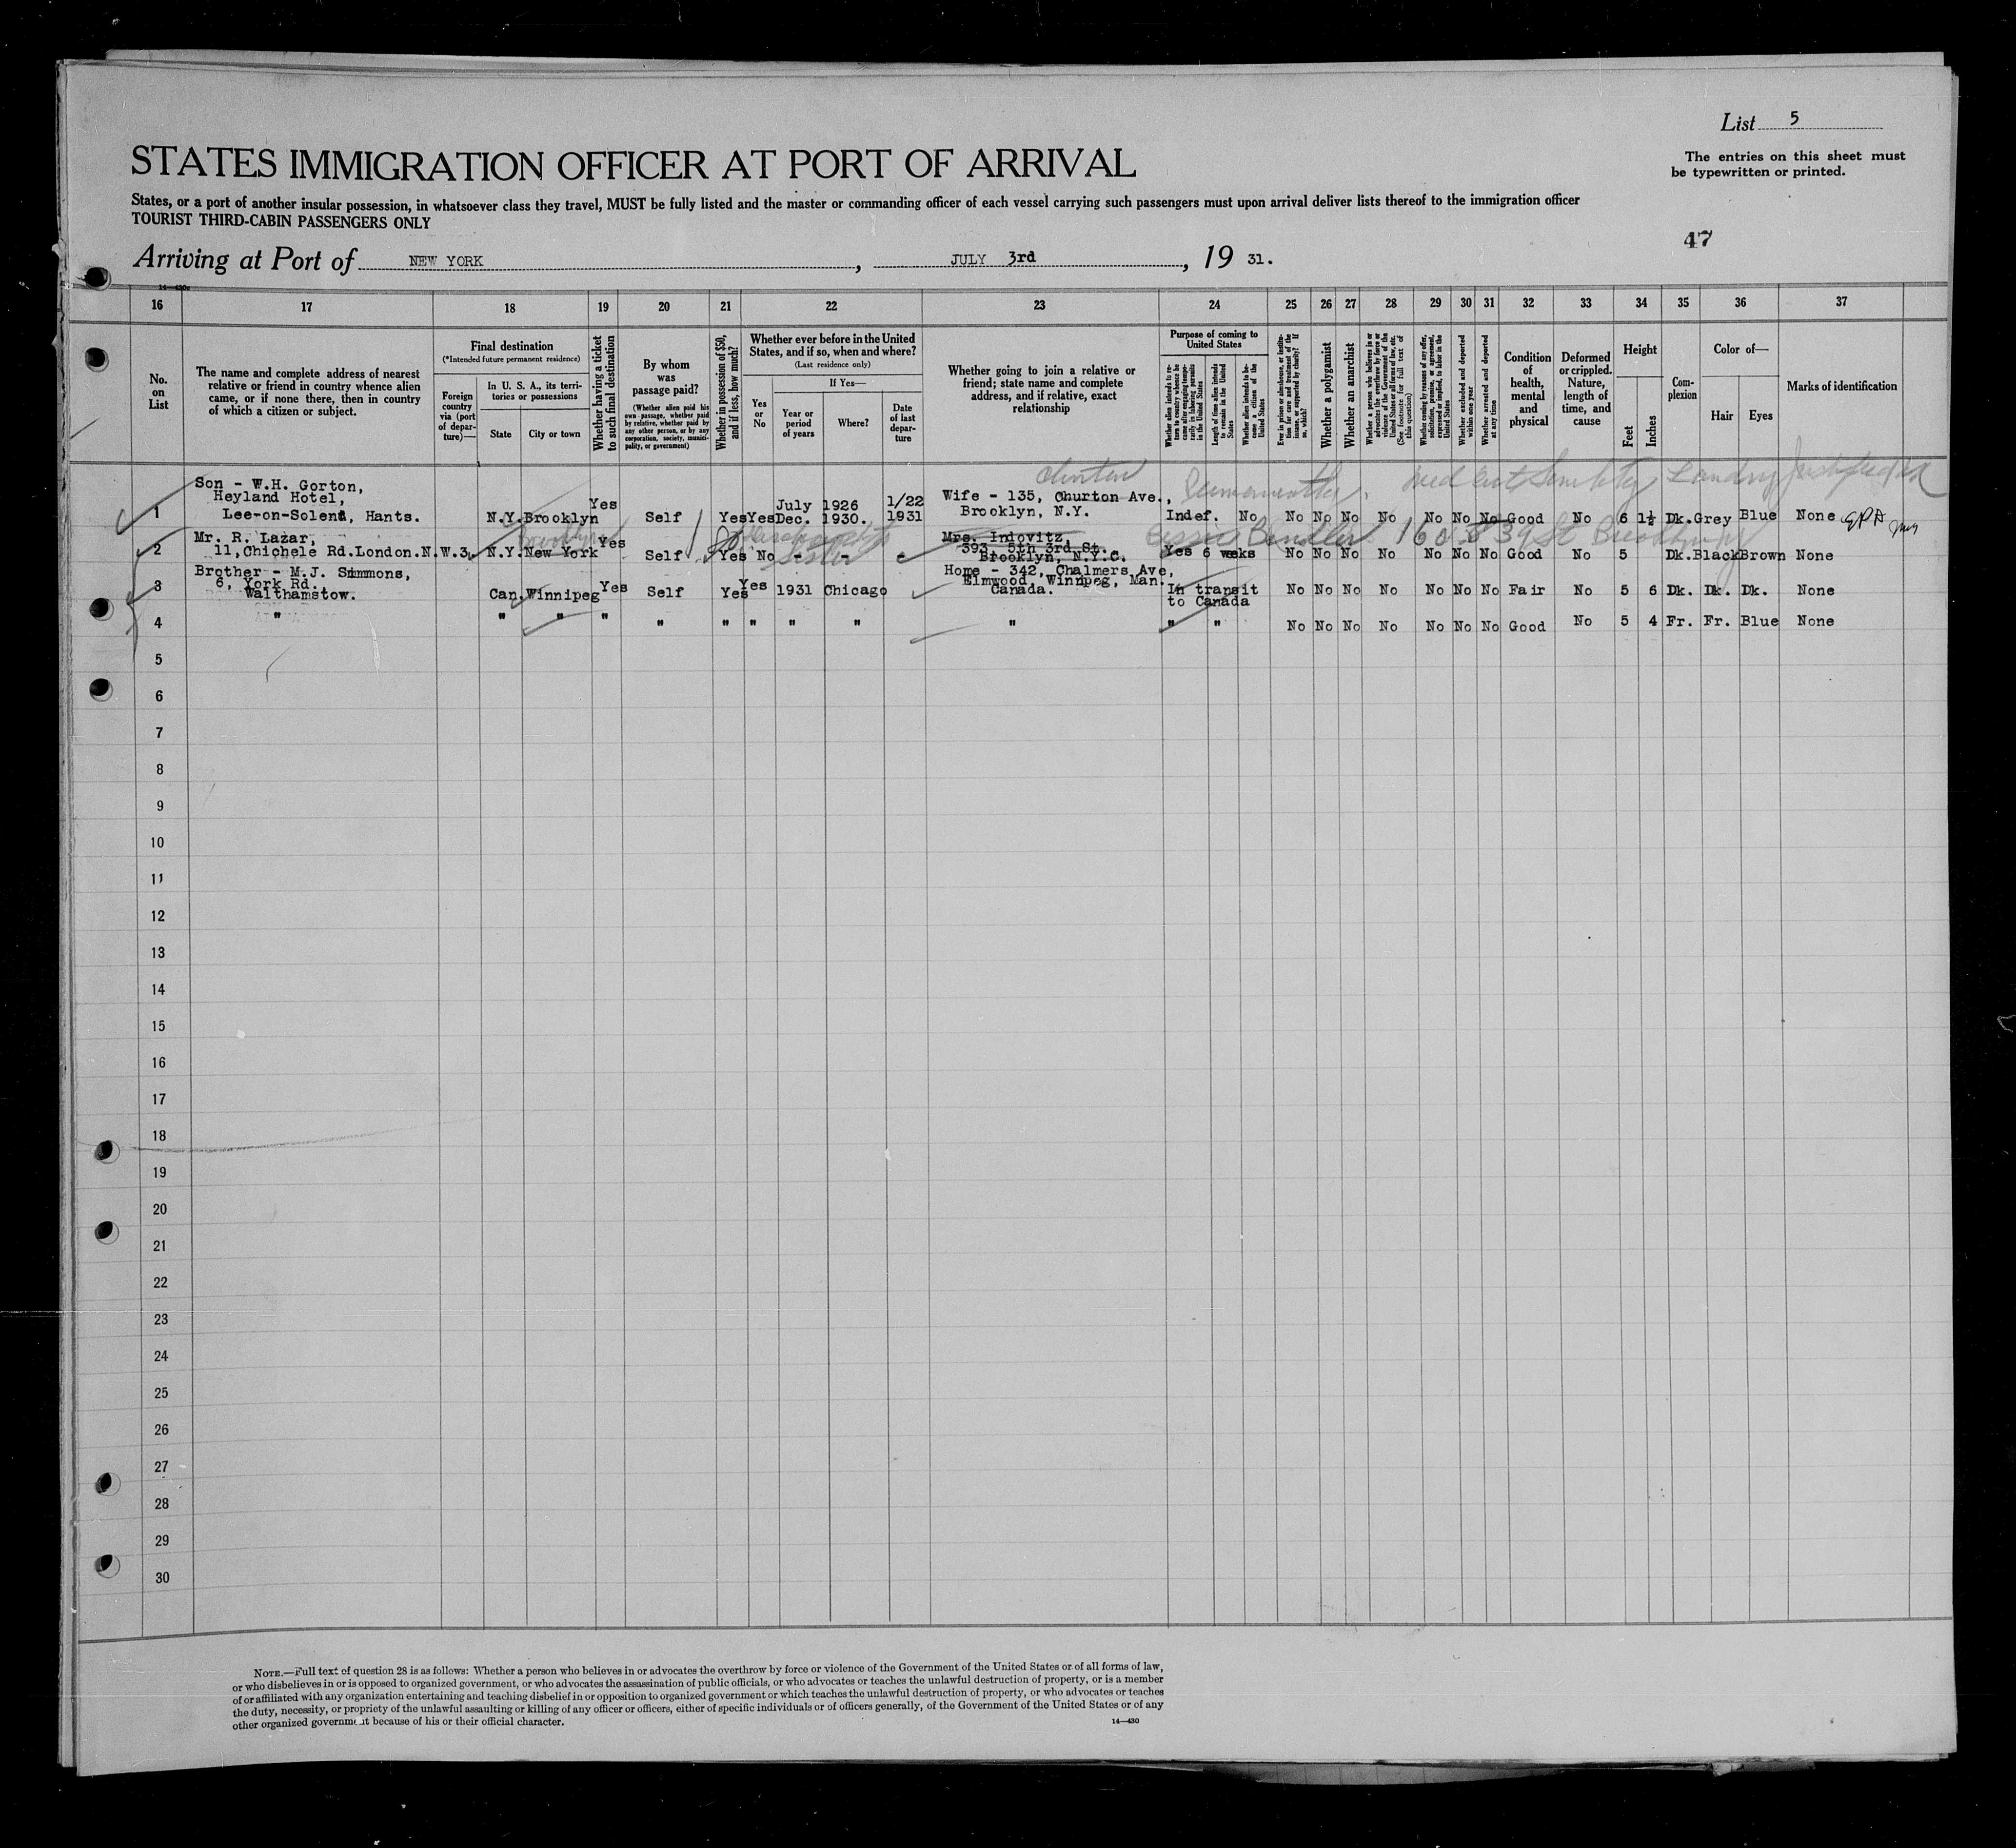 List 5
STATES IMMIGRATION OFFICER AT PORT OF ARRIVAL
The entries on this sheet must
be typewritten or printed.
States, or a port of another insular possession, in whatsoever class they travel, MUST be fully listed and the master or commanding officer of each vessel carrying such passengers must upon arrival deliver lists thereof to the immigration officer
TOURIST THIRD-CABIN PASSENGERS ONLY
47
Arriving at Port of NEW YORK, JULY 3rd, 19 31.
14-430
16 17 18 19 20 21 22 23 24 25 26 27 28 29 30 31 32 33 34 35 36 37
No.
on
List
The name and complete address of nearest
relative or friend in country whence alien
came, or if none there, then in country
of which a citizen or subject.
Final destination
(*Intended future permanent residence)
Foreign
country
via (port
of depar-
ture)—
In U. S. A., its terri-
tories or possessions
State
City or town
Whether having a ticket
to such final destination
By whom
was
passage paid?
(Whether alien paid his
own passage, whether paid
by relative, whether paid by
any other person, or by any
corporation, society, munici-
pality, or government)
Whether in possession of $50,
and if less, how much?
Whether ever before in the United
States, and if so, when and where?
(Last residence only)
Yes
or
No
If Yes—
Year or
period
of years
Where?
Date
of last
depar-
ture
Whether going to join a relative or
friend; state name and complete
address, and if relative, exact
relationship
Purpose of coming to
United States
Whether alien intends to re-
turn to country whence he
came after engaging tempo-
rarily in laboring pursuits
in the United States
Length of time alien intends
to remain in the United
States
Whether alien intends to be-
come a citizen of the
United States
Ever in prison or almshouse, or institu-
tion for care and treatment of the
insane, or supported by charity? If
so, which?
Whether a polygamist
Whether an anarchist
Whether a person who believes in or
advocates the overthrow by force or
violence of the Government of the
United States or all forms of law, etc.
(See footnote for full text of
this question)
Whether coming by reasons of any offer,
solicitation, promise, or agreement,
expressed or implied, to labor in the
United States
Whether excluded and deported
within one year
Whether arrested and deported
at any time
Condition
of
health,
mental
and
physical
Deformed
or crippled.
Nature,
length of
time, and
cause
Height
Feet
Inches
Com-
plexion
Color of—
Hair
Eyes
Marks of identification
Clinton
1 Son - W.H. Gorton,
Heyland Hotel,
Lee-on-Solent, Hants. N.Y. Brooklyn Yes Self Yes Yes July 1926 Dec. 1930. 1/22 1931 Wife - 135, Churton Ave.,
Brooklyn, N.Y. Indef. No No No No No No No No Good No 6 1½ Dk. Grey Blue None
Brooklyn
2 Mr. R. Lazar,
11, Chichele Rd. London. N.W.3. N.Y. New York Yes Self Yes No - - Mrs. Intovitz,
393, 5th 3rd St.
Brooklyn, N.Y.C. Yes 6 weeks No No No No No No No Good No 5 Dk. Black Brown None
Sister
Bessie Bendler 39 St Brooklyn
3 Brother - M.J. Simmons,
6, York Rd.,
Walthamstow. Can. Winnipeg Yes Self Yes Yes 1931 Chicago Home - 342, Chalmers Ave,
Elmwood, Winnipeg, Man.
Canada. In transit
to Canada No No No No No No No Fair No 5 6 Dk. Dk. Dk. None
4 " " " " " " " " " " " " No No No No No No No Good No 5 4 Fr. Fr. Blue None
5
6
7
8
9
10
11
12
13
14
15
16
17
18
19
20
21
22
23
24
25
26
27
28
29
30
NOTE.—Full text of question 28 is as follows: Whether a person who believes in or advocates the overthrow by force or violence of the Government of the United States or of all forms of law,
or who disbelieves in or is opposed to organized government, or who advocates the assassination of public officials, or who advocates or teaches the unlawful destruction of property, or is a member
of or affiliated with any organization entertaining and teaching disbelief in or opposition to organized government or which teaches the unlawful destruction of property, or who advocates or teaches
the duty, necessity, or propriety of the unlawful assaulting or killing of any officer or officers, either of specific individuals or of officers generally, of the Government of the United States or of any
other organized government because of his or their official character.
14—430